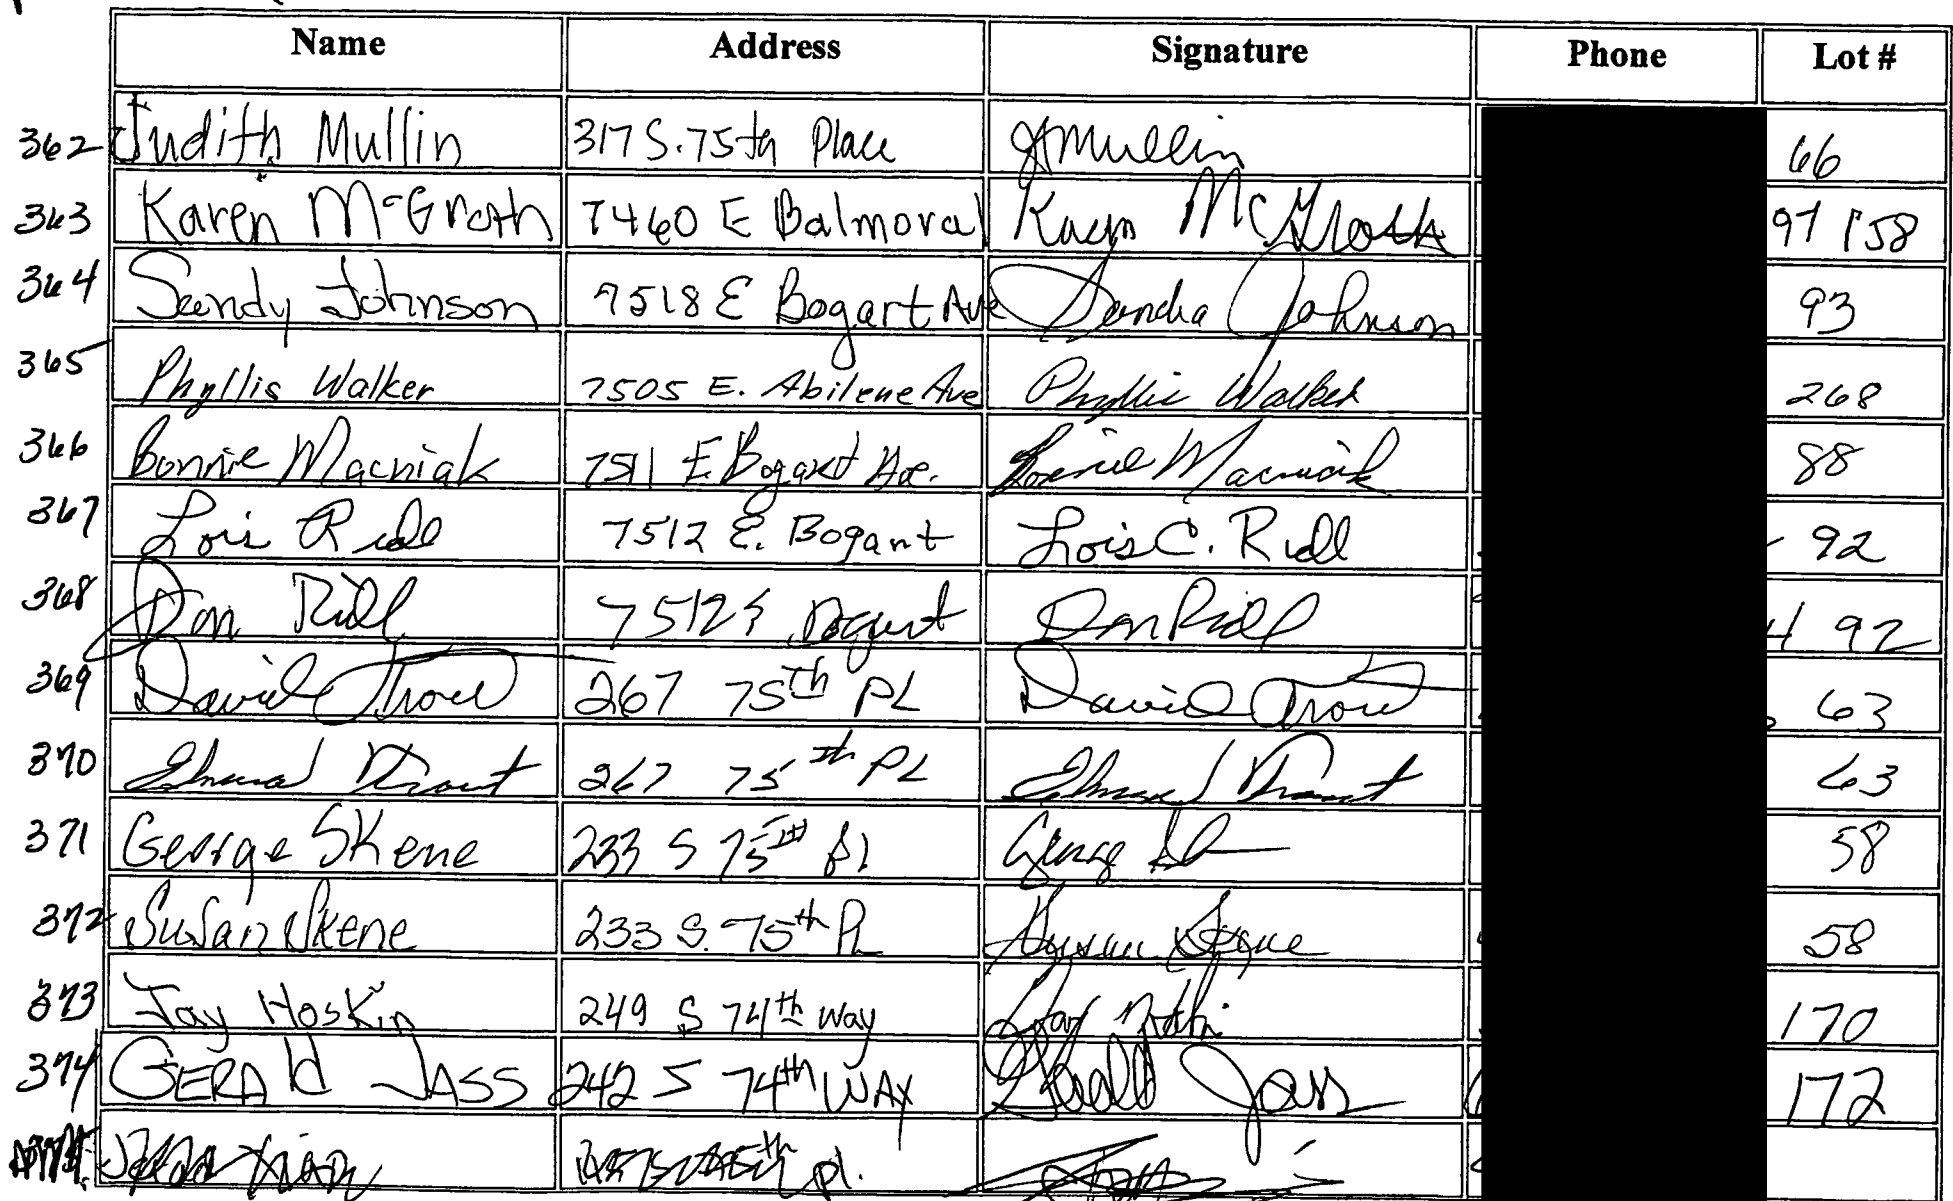 Name Address Signature Phone Lot #
362 Judith Mullin 317 S. 75th Place JMullin 66
363 Karen McGrath 7460 E Balmoral Karen McGrath 97 158
364 Sandy Johnson 7518 E Bogart Ave Sandra Johnson 93
365 Phyllis Walker 7505 E. Abilene Ave Phyllis Walker 268
366 Bonnie Macniak 7511 E. Bogart Ave. Bonnie Macniak 88
367 Lois Ridl 7512 E. Bogart Lois C. Ridl 92
368 Don Ridl 7512 E Bogart Don Ridl 92
369 David 267 75th PL David 63
370 267 75th PL 63
371 George Skene 233 S 75th Pl George 58
372 Susan Skene 233 S. 75th PL Susan Skene 58
373 Jay Hoskin 249 S 74th Way Jay 170
374 GERAld JASS 242 S 74th WAY Gerald Jass 172
pl.